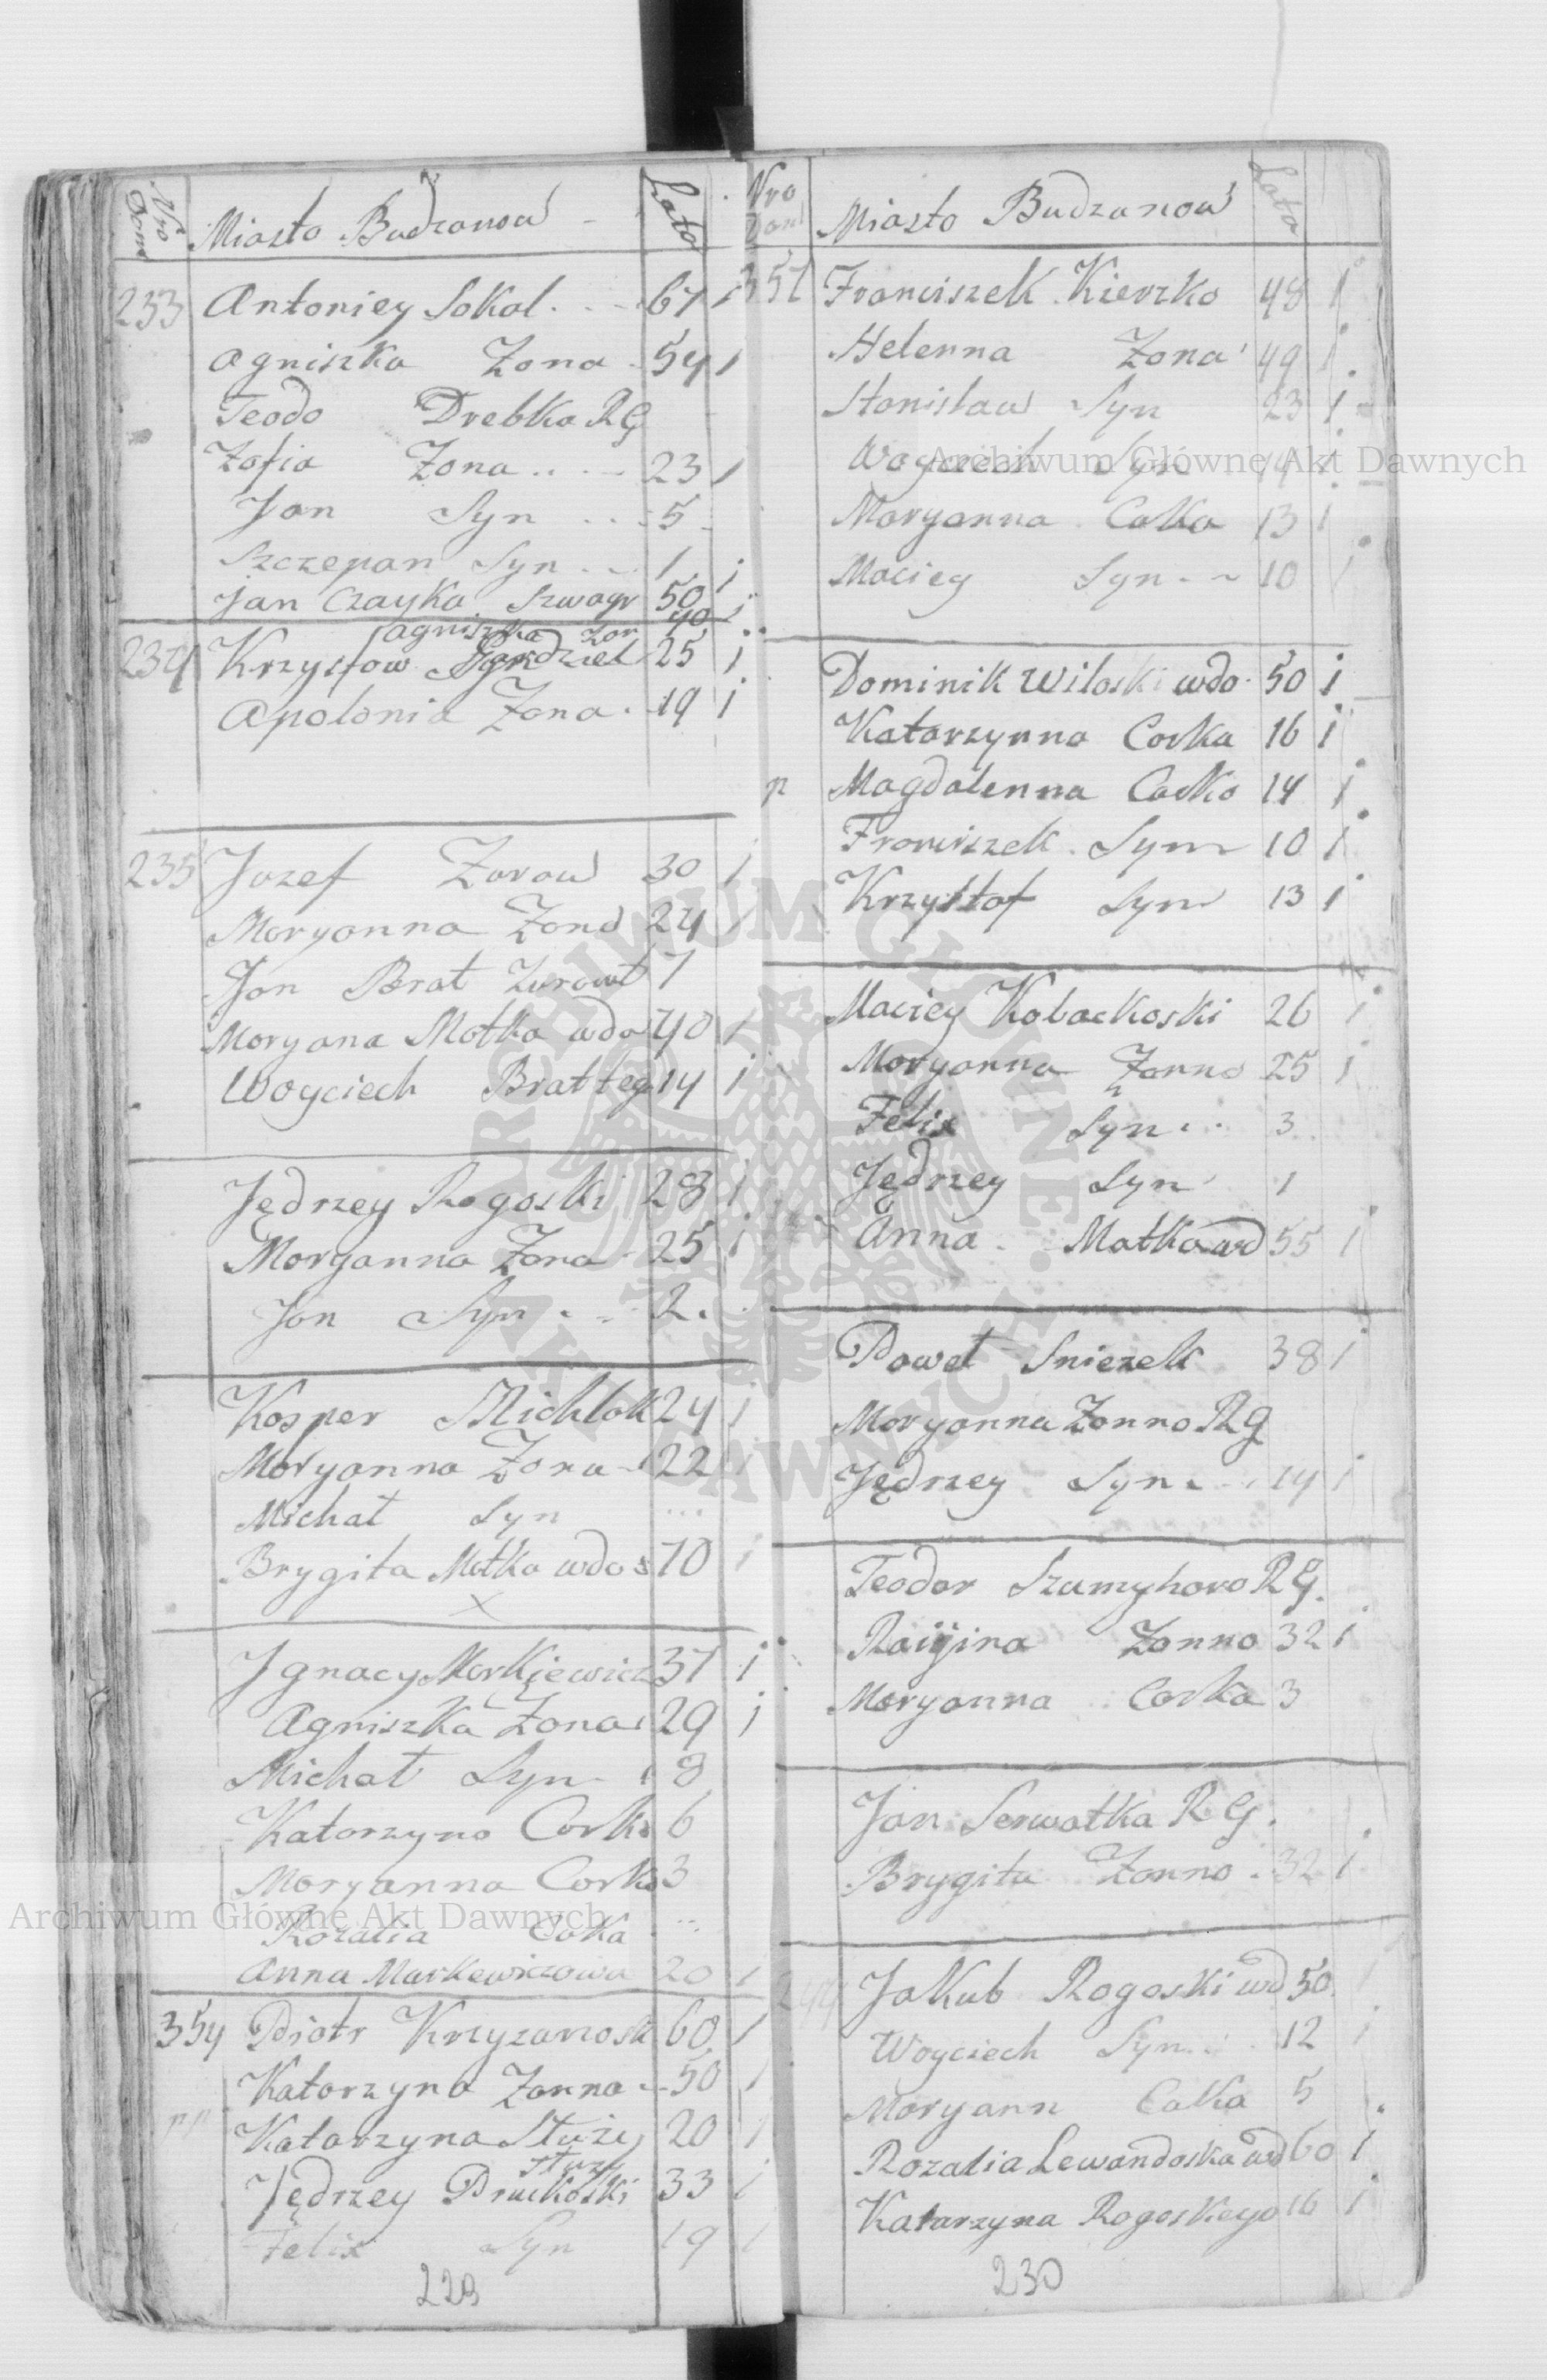 Nro Dom Miasto Budzanow Lata
233 Antoniey Sokal 67 1
Agniszka Zona 54 1
Teodo Drebka RG
Zofia Zona 23 1
Jan Syn 5
Szczepan Syn 1
Jan Czayka Szwagr 50 i
Agniszka Zon 40 i
234 Krzysztow 25 i
Apolonia Zona 19 i
235 Jozef Zorow 30 i
Moryanna Zona 24 1
Jan Brat 7
Moryana Matka wdo 40 1
Woyciech Brat teg 14 i
Jędrzey Rogoski 28 i
Moryanna Zona 25 i
Jan Syn 2
Kosper Michlok 24 i
Moryanna Zona 22 i
Michał Syn ...
Brygita Matka wdo 70 i
x
Jgnacy Markiewicz 37 i
Agniszka Zona 29 i
Michał Syn 8
Katarzyna Corka 6
Moryanna Corka 3
Rozalia Coka ...
Anna Markewiczowa 20 1
354 Piotr Krzyzanosk 60 1
Katarzyna Zonna 50 1
Katarzyna Służy 20 1
służy
Jędrzey Pruchoski 33 i
Felix Syn 19 1
229
Nro Dom Miasto Budzanow Lata
357 Franciszek Kierzko 48 1
Helenna Zona 49 i
Stanisław Syn 23 1
Woyciech Syn 14 i
Moryanna Calka 13 i
Maciey Syn 10 i
Dominik Wiloski wdo 50 i
Katarzynna Corka 16 i
n Magdalenna Corka 14 i
Franciszek Syn 10 i
Krzysztof Syn 13 i
Maciey Kobackoski 26 i
Moryanna Zonna 25 i
Felix Syn 3
Jędrzey Syn 1
Anna Matka wd 55 i
Paweł Sniezek 38 i
Moryanna Zonna RG
Jędrzey Syn 14 i
Teodor Szumyhora RG.
Raijina Zonna 32 i
Moryanna Corka 3
Jan Serwatka RG.
Brygita Zonna 32 i
244 Jakub Rogoski wd 50 1
Woyciech Syn 12 i
Moryann Calka 5
Rozalia Lewandoska wd 60 i
Katarzyna Rogoskego 16 i
230
Archiwum Główne Akt Dawnych
Archiwum Główne Akt Dawnych
ARCHIWUM GŁÓWNE AKT DAWNYCH